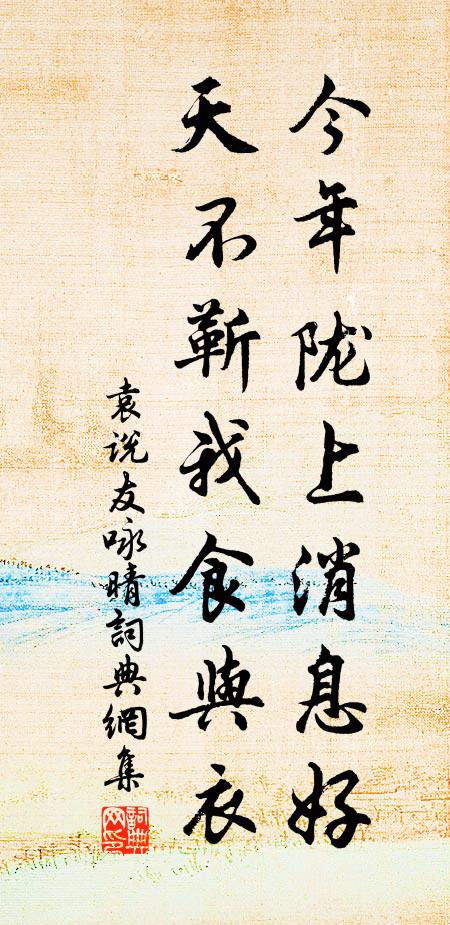 今年陇上消息好
天不蕲我食与衣
袁说友咏晴词典網集
詞典网印